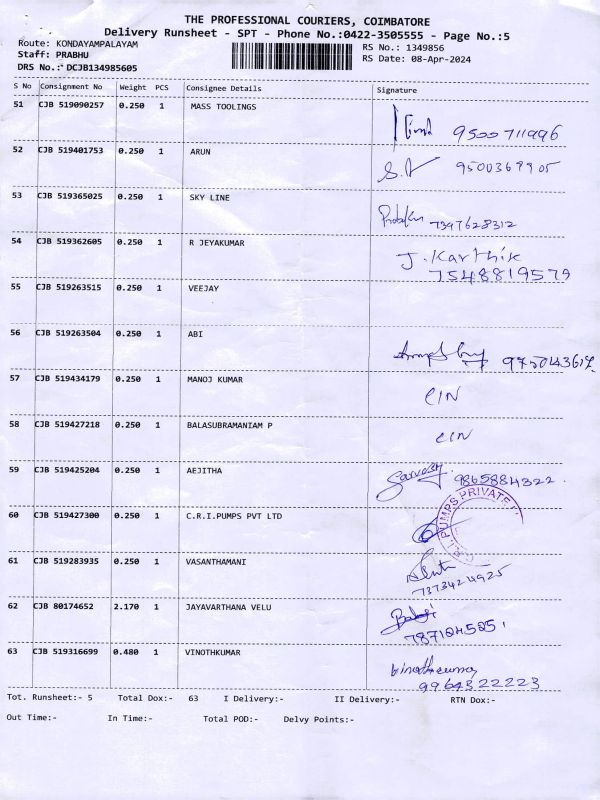 THE PROFESSIONAL COURIERS, COIMBATORE
Delivery Runsheet - SPT - Phone No.:0422-3505555 - Page No.:5
Route: KONDAYAMPALAYAM RS No.: 1349856
Staff: PRABHU RS Date: 08-Apr-2024
DRS No.: DCJB134985605
S No Consignment No Weight PCS Consignee Details Signature
51 CJB 519090257 0.250 1 MASS TOOLINGS
9500711996
52 CJB 519401753 0.250 1 ARUN
S.
53 CJB 519365025 0.250 1 SKY LINE
7397628312
54 CJB 519362605 0.250 1 R JEYAKUMAR J. Karthik
7548819579
55 CJB 519263515 0.250 1 VEEJAY
56 CJB 519263504 0.250 1 ABI
57 CJB 519434179 0.250 1 MANOJ KUMAR
CIN
58 CJB 519427218 0.250 1 BALASUBRAMANIAM P
CIN
59 CJB 519425204 0.250 1 AEJITHA
9865884322
60 CJB 519427300 0.250 1 C.R.I.PUMPS PVT LTD
PUMPS PRIVATE
61 CJB 519283935 0.250 1 VASANTHAMANI
7373424925
62 CJB 80174652 2.170 1 JAYAVARTHANA VELU
63 CJB 519316699 0.480 1 VINOTHKUMAR
9964322223
Tot. Runsheet:- 5 Total Dox:- 63 I Delivery:- II Delivery:- RTN Dox:-
Out Time:- In Time:- Total POD:- Delvy Points:-